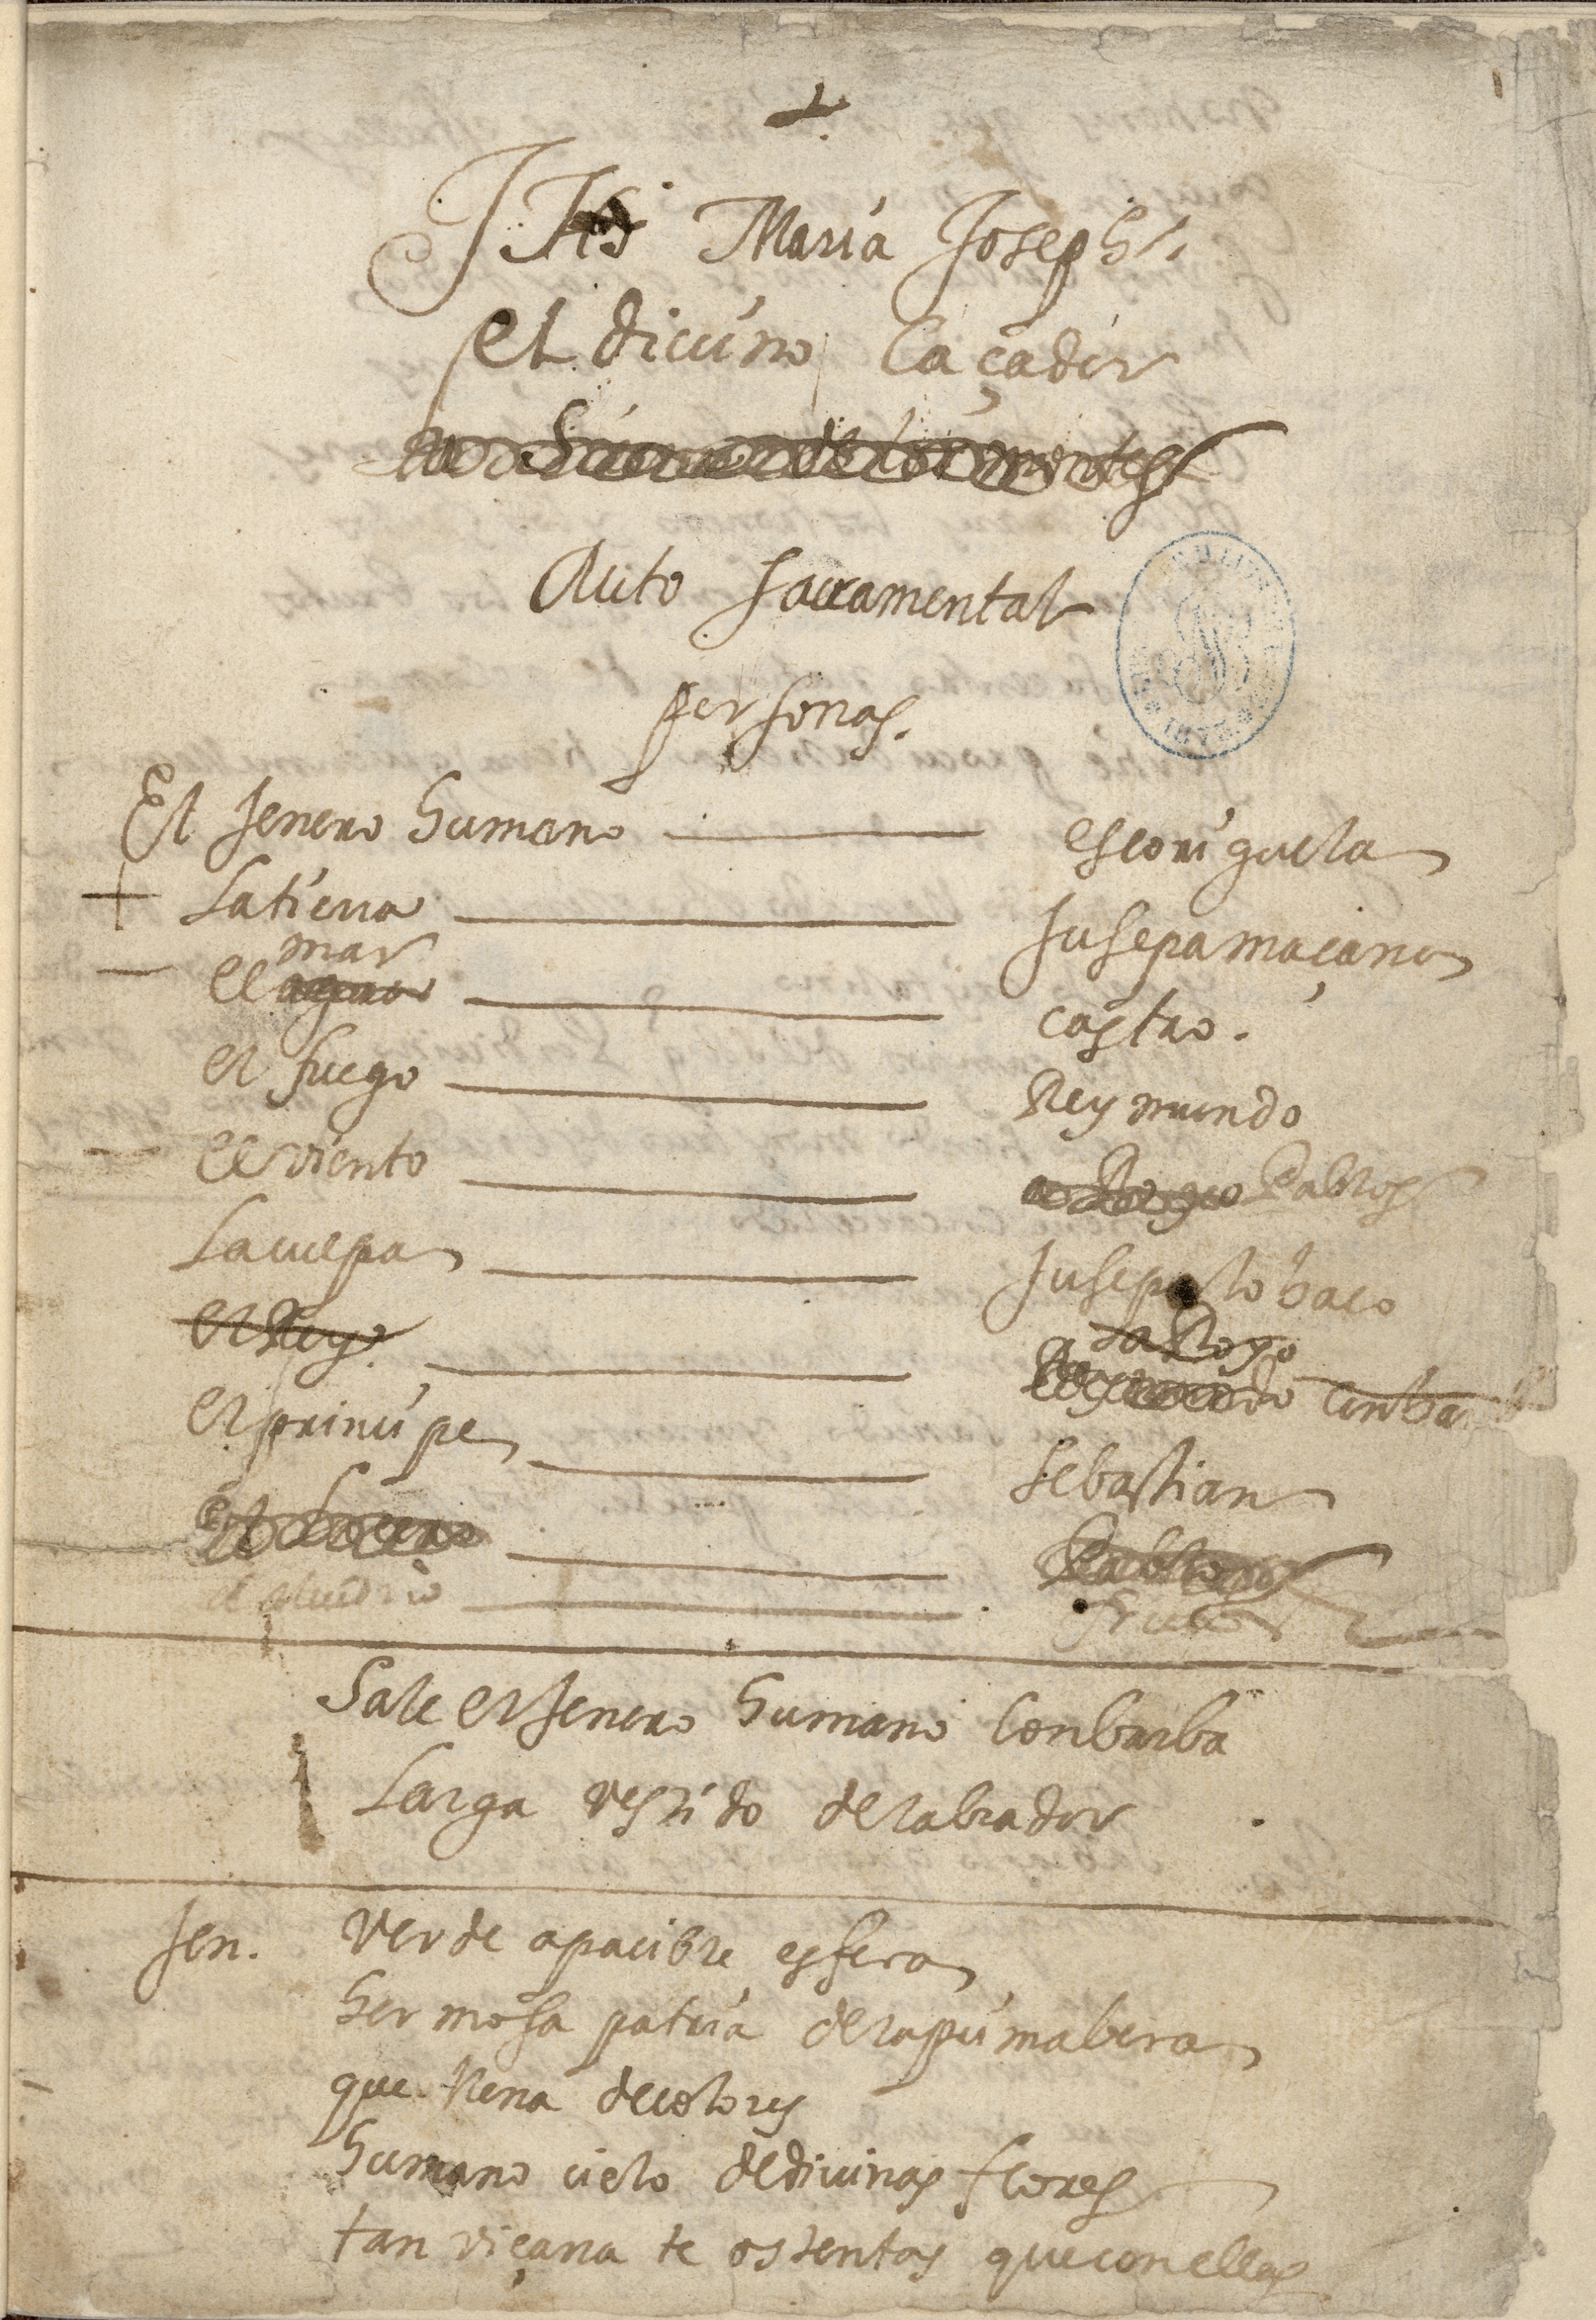 JHS Maria Joseph
el divino Caçador
de los montes
Auto sacramental
personas.
El jenero humano escoriguela
La tierra Jusepa maçana
mar
el agua castro.
el fuego Reymundo
el viento Pablos
La culpa Jusepa lobaco
el Rey
el principe sebastian
el
el alvedrio
Sale el jenero humano con barba
Larga vestido de labrador
jen. verde apacible esfera
hermosa patria de la primabera
que llena de colores
humano cielo de divinas flores
tan viçana te ostentas que con ellas